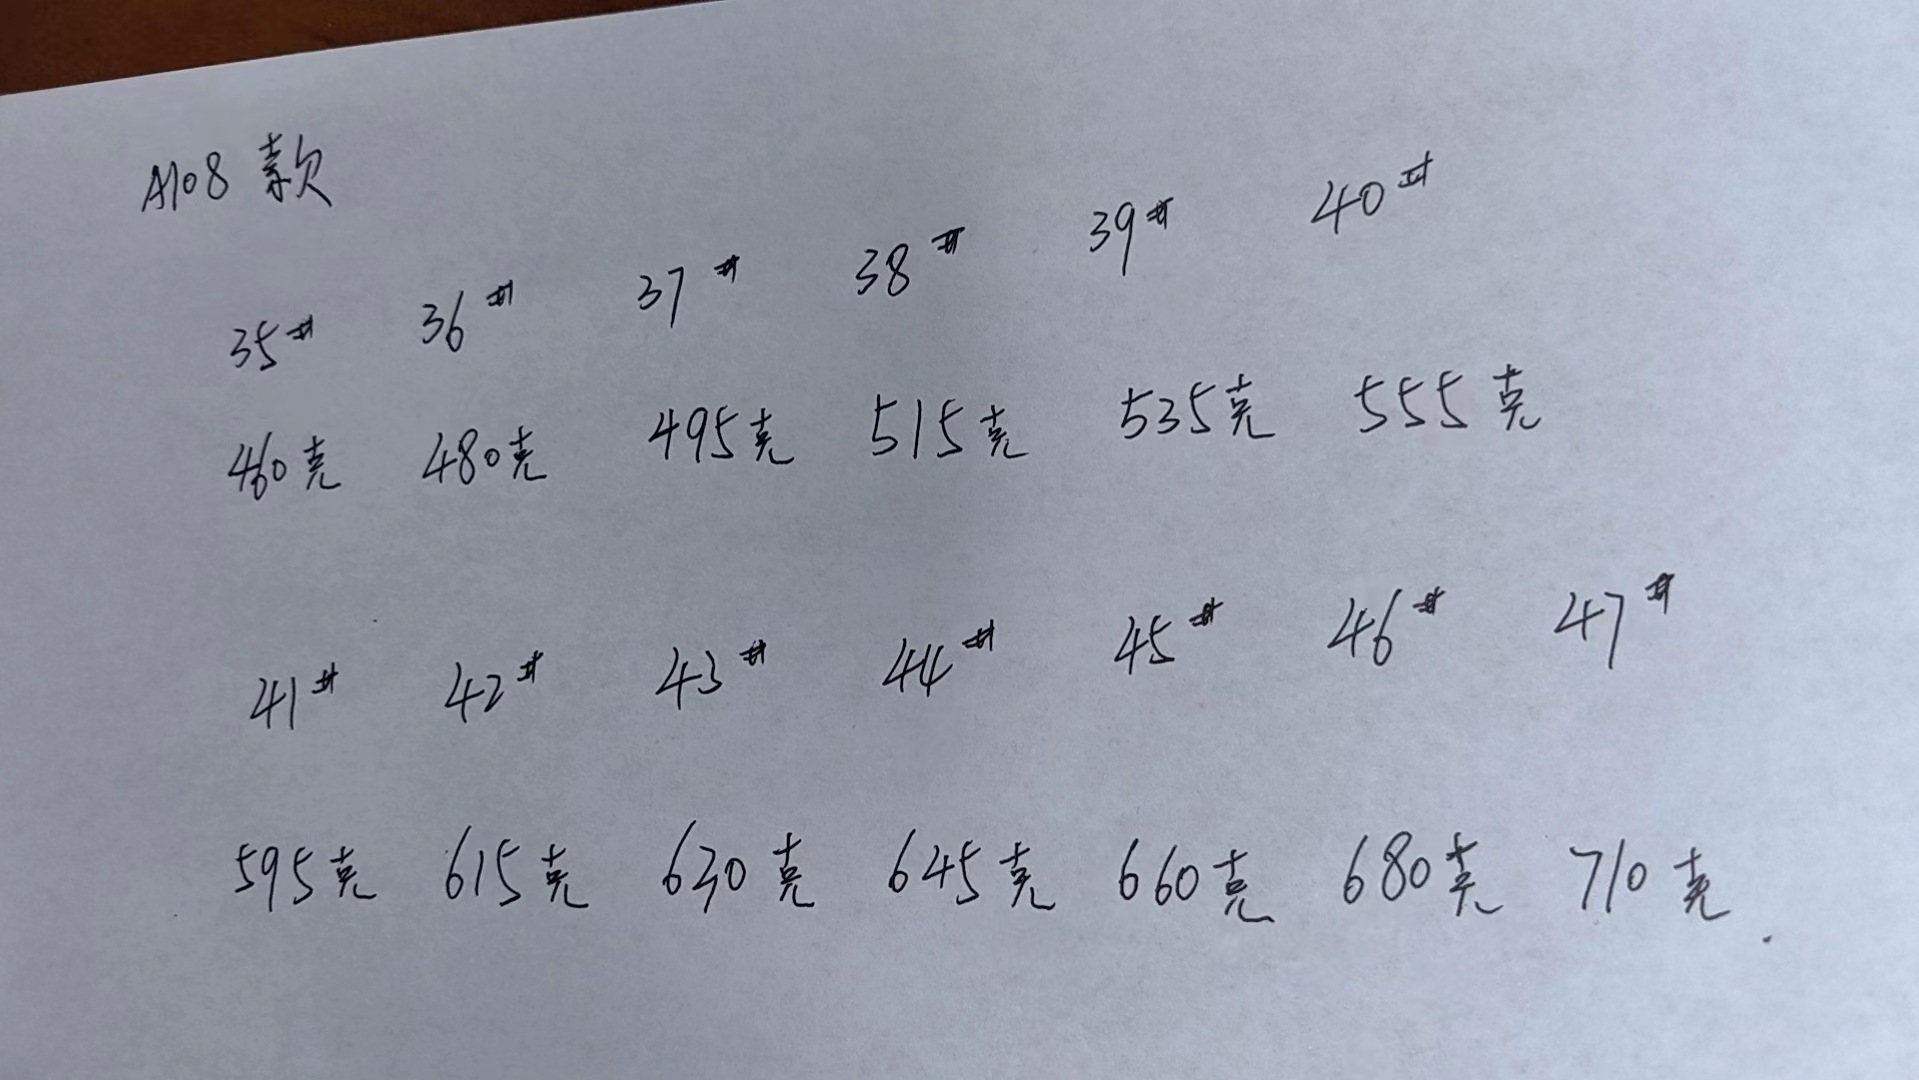 A108 款
35# 36# 37# 38# 39# 40#
460克 480克 495克 515克 535克 555克
41# 42# 43# 44# 45# 46# 47#
595克 615克 630克 645克 660克 680克 710克